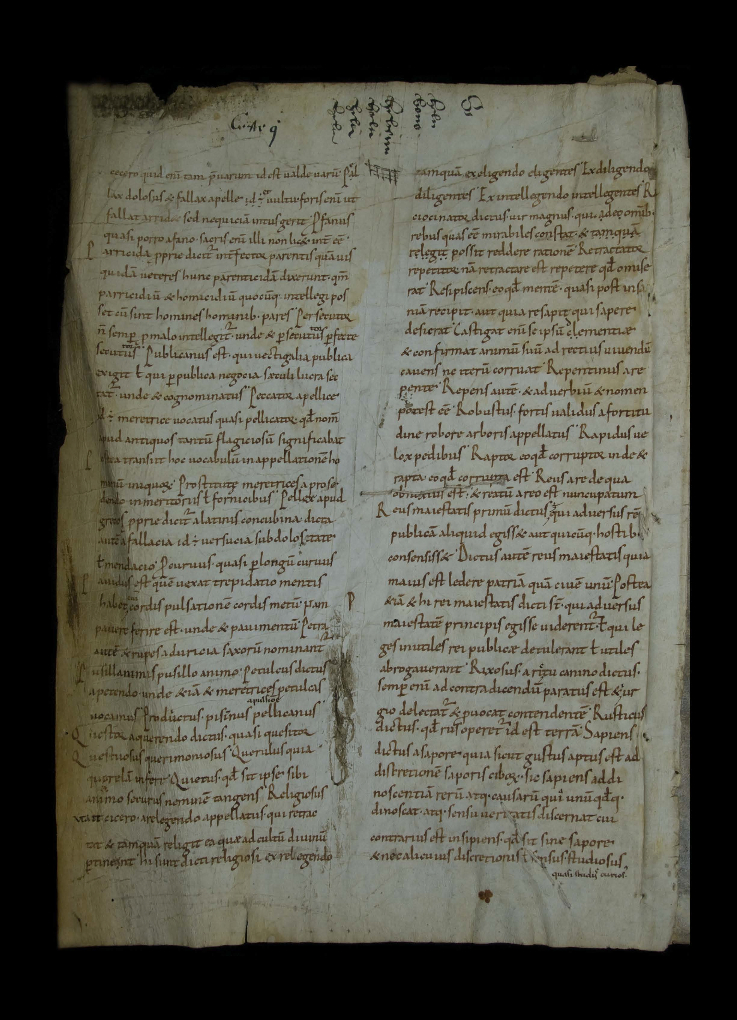 cicero quid eni tam uarium id est ualde uariu Fal
lax dolosus & fallax apelle id uultu foris eni ut
fallat arridet sed nequiciā intus gerit Pfanus
quasi porro a fano sacris eni illi non lic& int eē
arricidā pprie dicit intfector parentis quāuis
quidā ueteres hunc parenticidā dixerunt qm
parricidiū & homicidiū quocūq intellegi pos
set cū sint homines hominib pares Persecutor
n semp p malo intellegit unde & psecutus pfecte
secutus Publicanus est qui uectigalia publica
exigit ł qui p publica negocia saeculi lucra sec
tat unde & cognominatus Peccator a pellice
id meretrice uocatus quasi pellicator qd nom
apud antiquos tantū flagiciosū significabat
postea transiit hoc uocabulū in appellationē ho
minū iniquor Prostitute meretrices a prose
dendo in meritoriis ł fornicibus Pellex apud
grecos pprie dicit a latinis concubina dicta
autē a fallacia id uersucia subdolositate
ł mendacio Peruius quasi p longū curuus
auidus est quē uexat trepidatio mentis
habet cordis pulsationē cordis metū nam
pauere ferire est unde & pauimentū Petra
autē & rupes a duricia saxorū nominant
Pusillanimis pusillo animo Petulcus dictus
apetendo unde & iā & meretrices petulcas
apulłione
uocamus Productus piscinus pellicanus
Questor a querendo dictus quasi quesitor
Questuosus querimoniosus Querulus quia
querelā infert Quietus qd sit ipse sibi
animo securus neminē tangens Religiosus
ut ait cicero a relegendo appellatus qui retrac
tat & tamquā religit ea quae ad cultū diuinū
ptineant hi sunt dicti religiosi ex relegendo
tamquā ex eligendo eligentes Ex diligendo
diligentes Ex intellegendo intellegentes R
ciocinator dictus uir magnus qui de omib
rebus quas eē mirabiles constat & tamquā
relegit possit reddere rationē Retractator
repetitor nā retractare est repetere qd omise
rat Resipiscens eo qd mentē quasi post insa
niā recipit aut quia resapit qui sapere
desierat Castigat eni se ipsū clementiae
& confirmat animū suū ad rectius uiuendū
cauens ne iterū corruat Repentinus a re
pente Repens autē & aduerbiū & nomen
potest eē Robustus fortis ualidus a fortitu
dine robore arboris appellatus Rapidus ue
lox pedibus Raptor eo qd corruptor inde &
rapta eo qd corrupta est Reus a re de qua
obnoxius est & reatū a reo est nuncupatum
Reus maiestatis primū dictus qui aduersus rē
publicā aliquid egiss& aut quicūq hostib
consensiss& Dictus autē reus maiestatis quia
maius est ledere patriā quā ciuē unū Postea
& iā & hi rei maiestatis dicti st qui aduersus
maiestatē principis egisse uiderent ł qui le
ges inutiles rei publicae detulerant ł utiles
abrogauerant Rixosus a rictu canino dictus
semp eni ad contradicendū paratus est & iur
gio delectat & puocat contendentē Rusticus
dictus qd rus operet id est terrā Sapiens
dictus a sapore quia sicut gustus aptus est ad
discretionē saporis cibor sic sapiens ad di
noscentiā rerū atq causarū qui unū qdq
dinoscat atq sensu ueritatis discernat cui
contrarius est insipiens qd sit sine sapore
& nec alicuius discretionis sensus Studiosus
quasi studiis curios